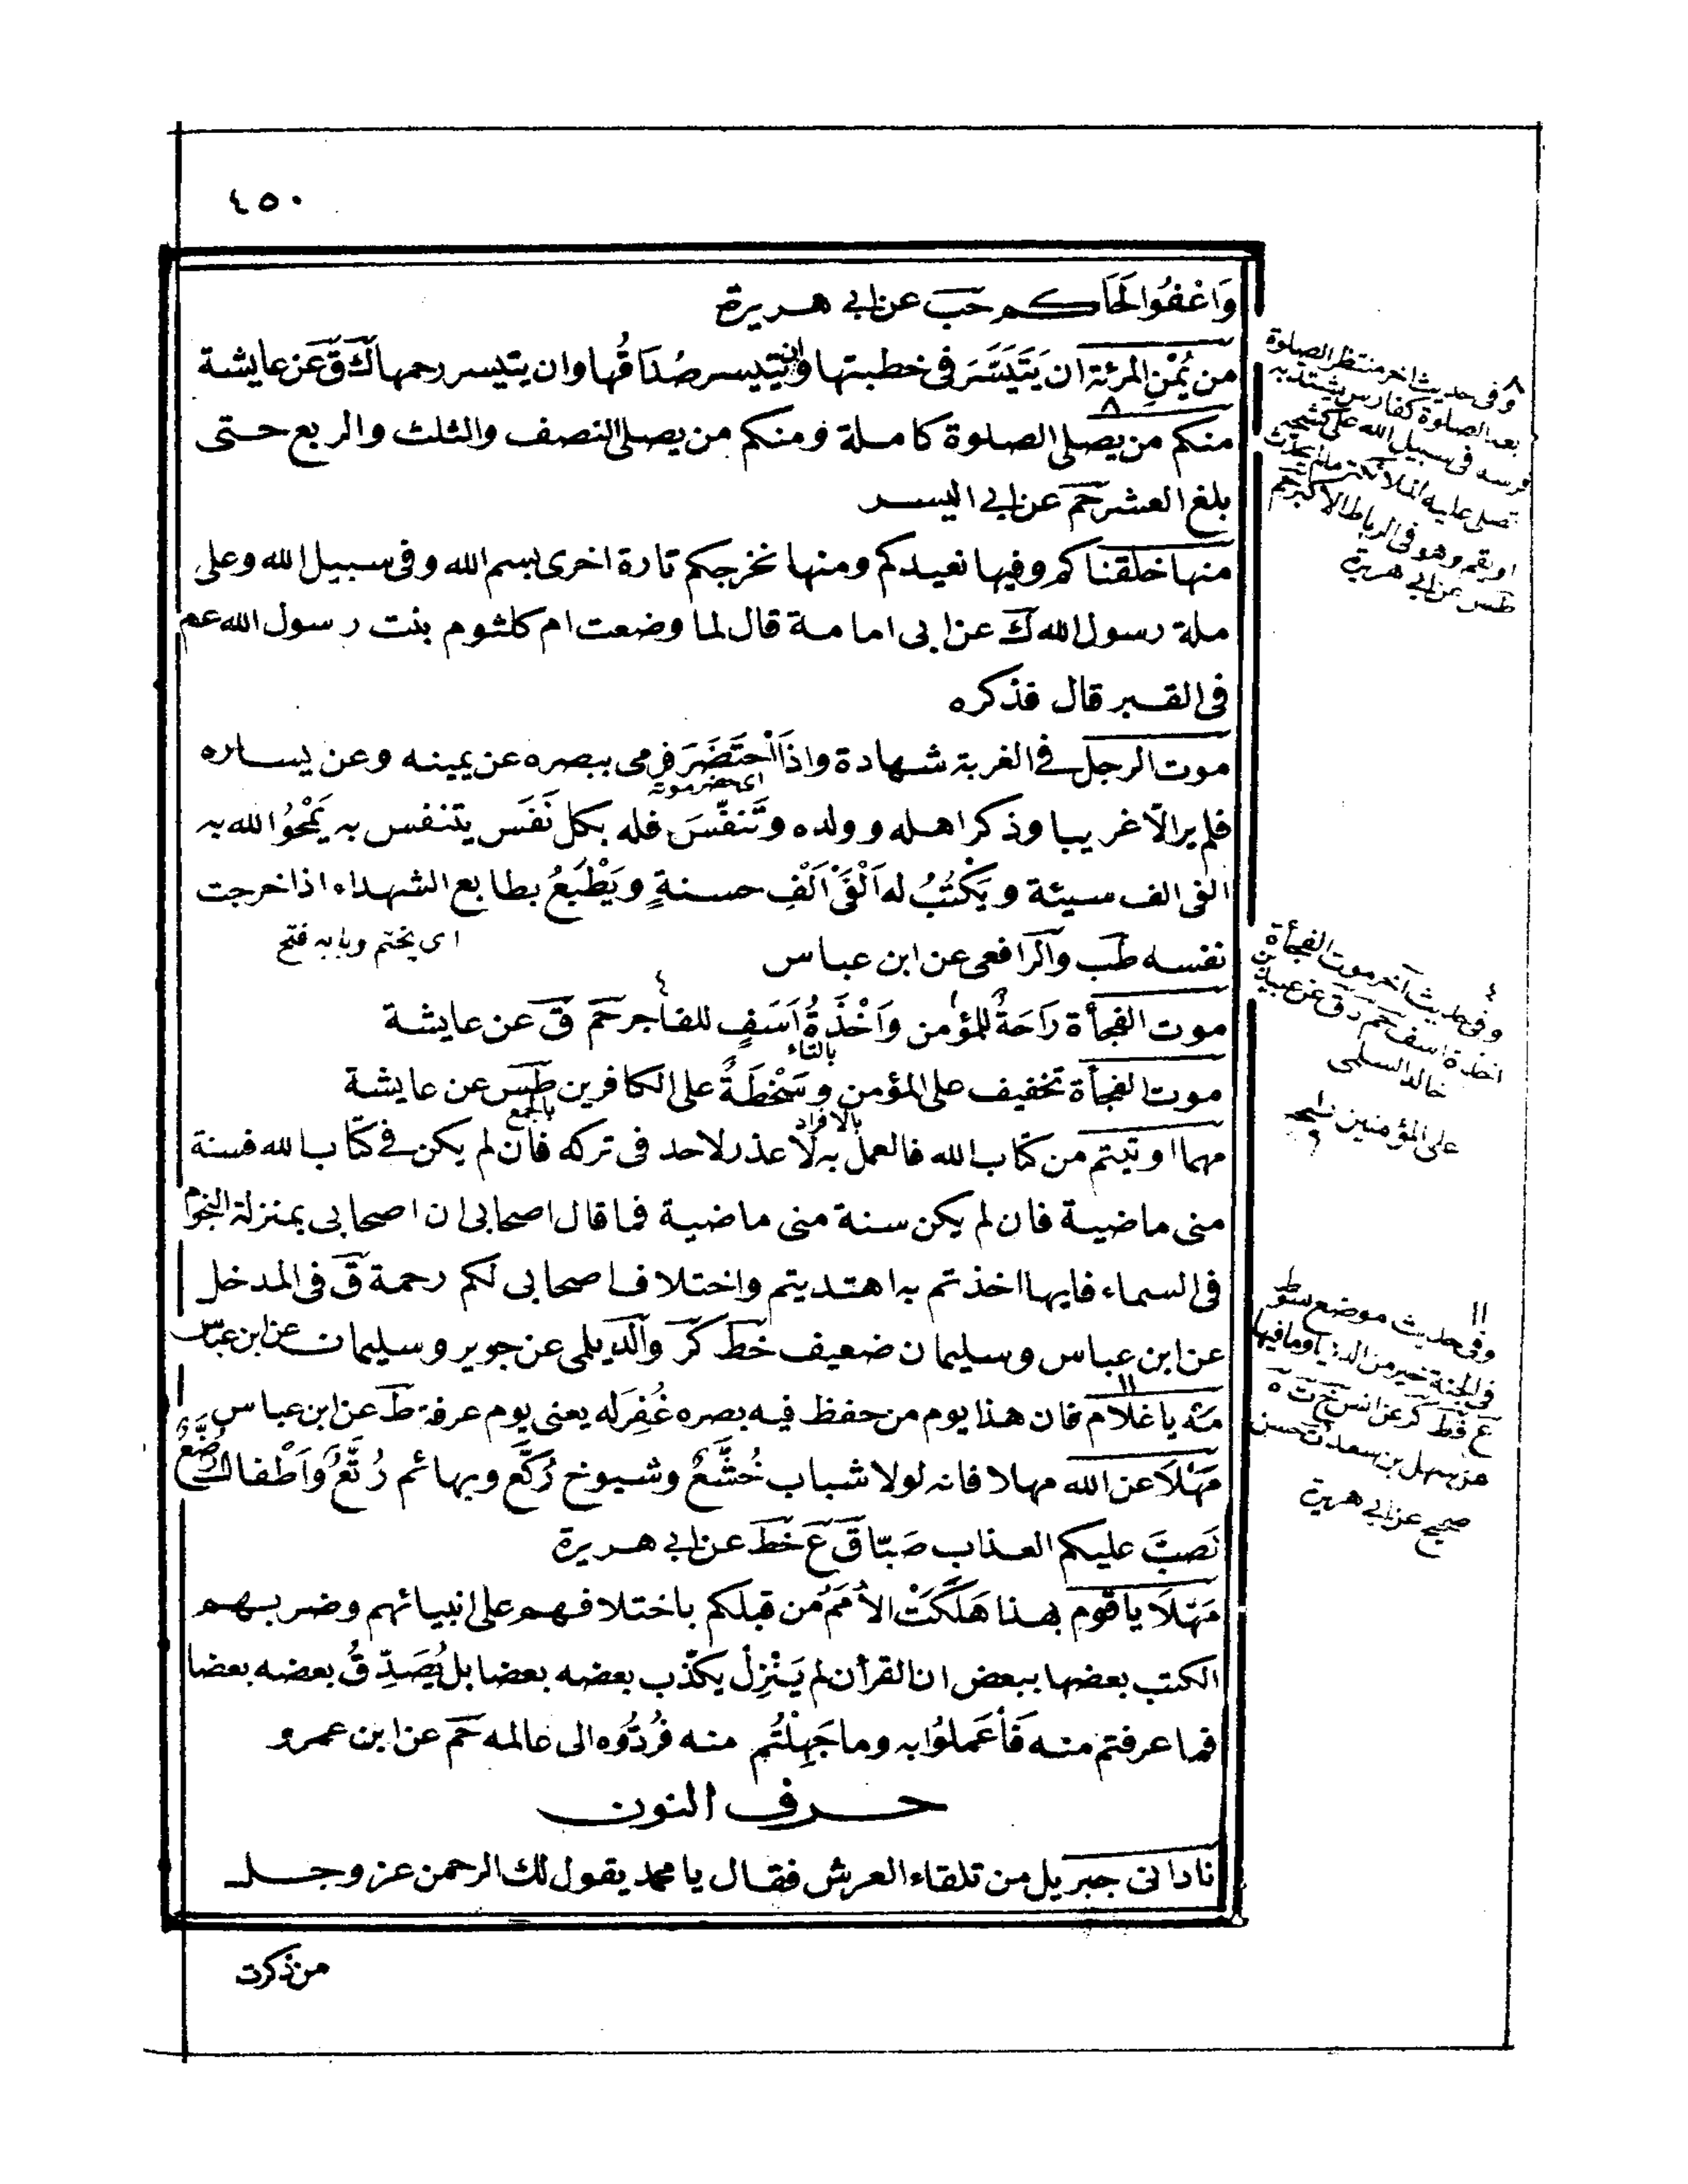 ٤٥٠
وَاعْفُوا لَحَاكم حَبَ عن ابى هريرة
من يُمْنِ المرئة ان يَتَيَسَّرَ فى خطبتها وان يتيسر صُدَاقُها وان يتيسر رحمها كَ قَ عَن عايشة
منكم من يصلى الصلوة كاملة ومنكم من يصلى النصف والثلث والربع حتى
بلغ العشر حَمَ عن ابى اليسر
منها خلقناكم وفيها نعيدكم ومنها نخرجكم تارة اخرى بسم الله وفى سبيل الله وعلى
ملة رسول الله كَ عن ابى امامة قال لما وضعت ام كلثوم بنت رسول الله عم
فى القبر قال فذكره
موت الرجل فى الغربة شهادة واذا احْتَضَرَ فرمى ببصره عن يمينه وعن يساره
اى حضر موته
فلم ير الّا غريبا وذكر اهله وولده وتَنفَّسَ فله بكل نَفَس يتنفس به يَمْحُوا لله به
الفى الف سيئة ويَكْتُبُ له اَلْفَىْ اَلْفِ حسنةٍ ويَطْبَعُ بطابع الشهداء اذا خرجت
اى يختم وبابه فتح
نفسه طَبَ والرافعى عن ابن عباس
موت الفجأة رَاحَةٌ للمؤمن وَاَخْذَةُ اَسَفٍ للفاجر حَمَ قَ عن عايشة
بالتاء
موت الفجأة تخفيف على المؤمن وسَخْطَةٌ على الكافرين طَسَ عن عايشة
بالافراد بالجمع
مهما اوتيتم من كتاب الله فالعمل به لا عذر لاحد فى تركه فان لم يكن فى كتاب الله فسنة
منى ماضية فان لم يكن سنة منى ماضية فما قال اصحابى ان اصحابى بمنزلة النجوم
فى السماء فايها اخذتم به اهتديتم واختلاف اصحابى لكم رحمة قَ فى المدخل
عن ابن عباس وسليمان ضعيف خَطَ كَرَ والديلمى عن جوير وسليمان عن ابن عباس
مَهْ يا غلام فان هذا يوم من حفظ فيه بصره غُفِرَ له يعنى يوم عرفة طَ عن ابن عباس
مَهْلَا عن الله مهلا فانه لولا شباب خُشَّعٌ وشيوخ رُكَّع وبهائم رُتَّعٌ وَاَطْفال رُضَّعٌ
نَصَبَّ عليكم العذاب صَبّا قَ عَ خَطَ عن ابى هريرة
مَهْلَا يا قوم بهذا هَلَكَتْ الأُمَمُ من قبلكم باختلافهم على انبيائهم وضربهم
الكتب بعضها ببعض ان القرأن لم يَنْزِلْ يكذّب بعضه بعضا بل يُصَدِّقُ بعضه بعضا
فما عرفتم منه فَأعَملُوا به وما جَهِلْتُم منه فَرُدُّوه الى عالمه حَمَ عن ابن عمرو
حرف النون
نادانى جبريل من تلقاء العرش فقال يا محمد يقول لك الرحمن عز وجل
من ذكرت
٨
وفى حديث اخر منتظر الصلوة
بعد الصلوة كفارس يشتد به
فرسه فى سبيل الله على كشحه
تصلى عليه الملائكة ما لم يحدث
او يقم وهو فى الرباط الاكبر حَم
طَس عن ابى هريرة
٤
وفى حديث آخر موت الفجأة
اخذة اسف حَم دَ قَ عن عبيد بن
خالد السلمى
على المؤمنين نسخه
١١
وفى حديث موضع سوط
فى الجنة خير من الدنيا وما فيها
عن سهل بن سعد تَ حسن
صحيح عن ابى هريرة